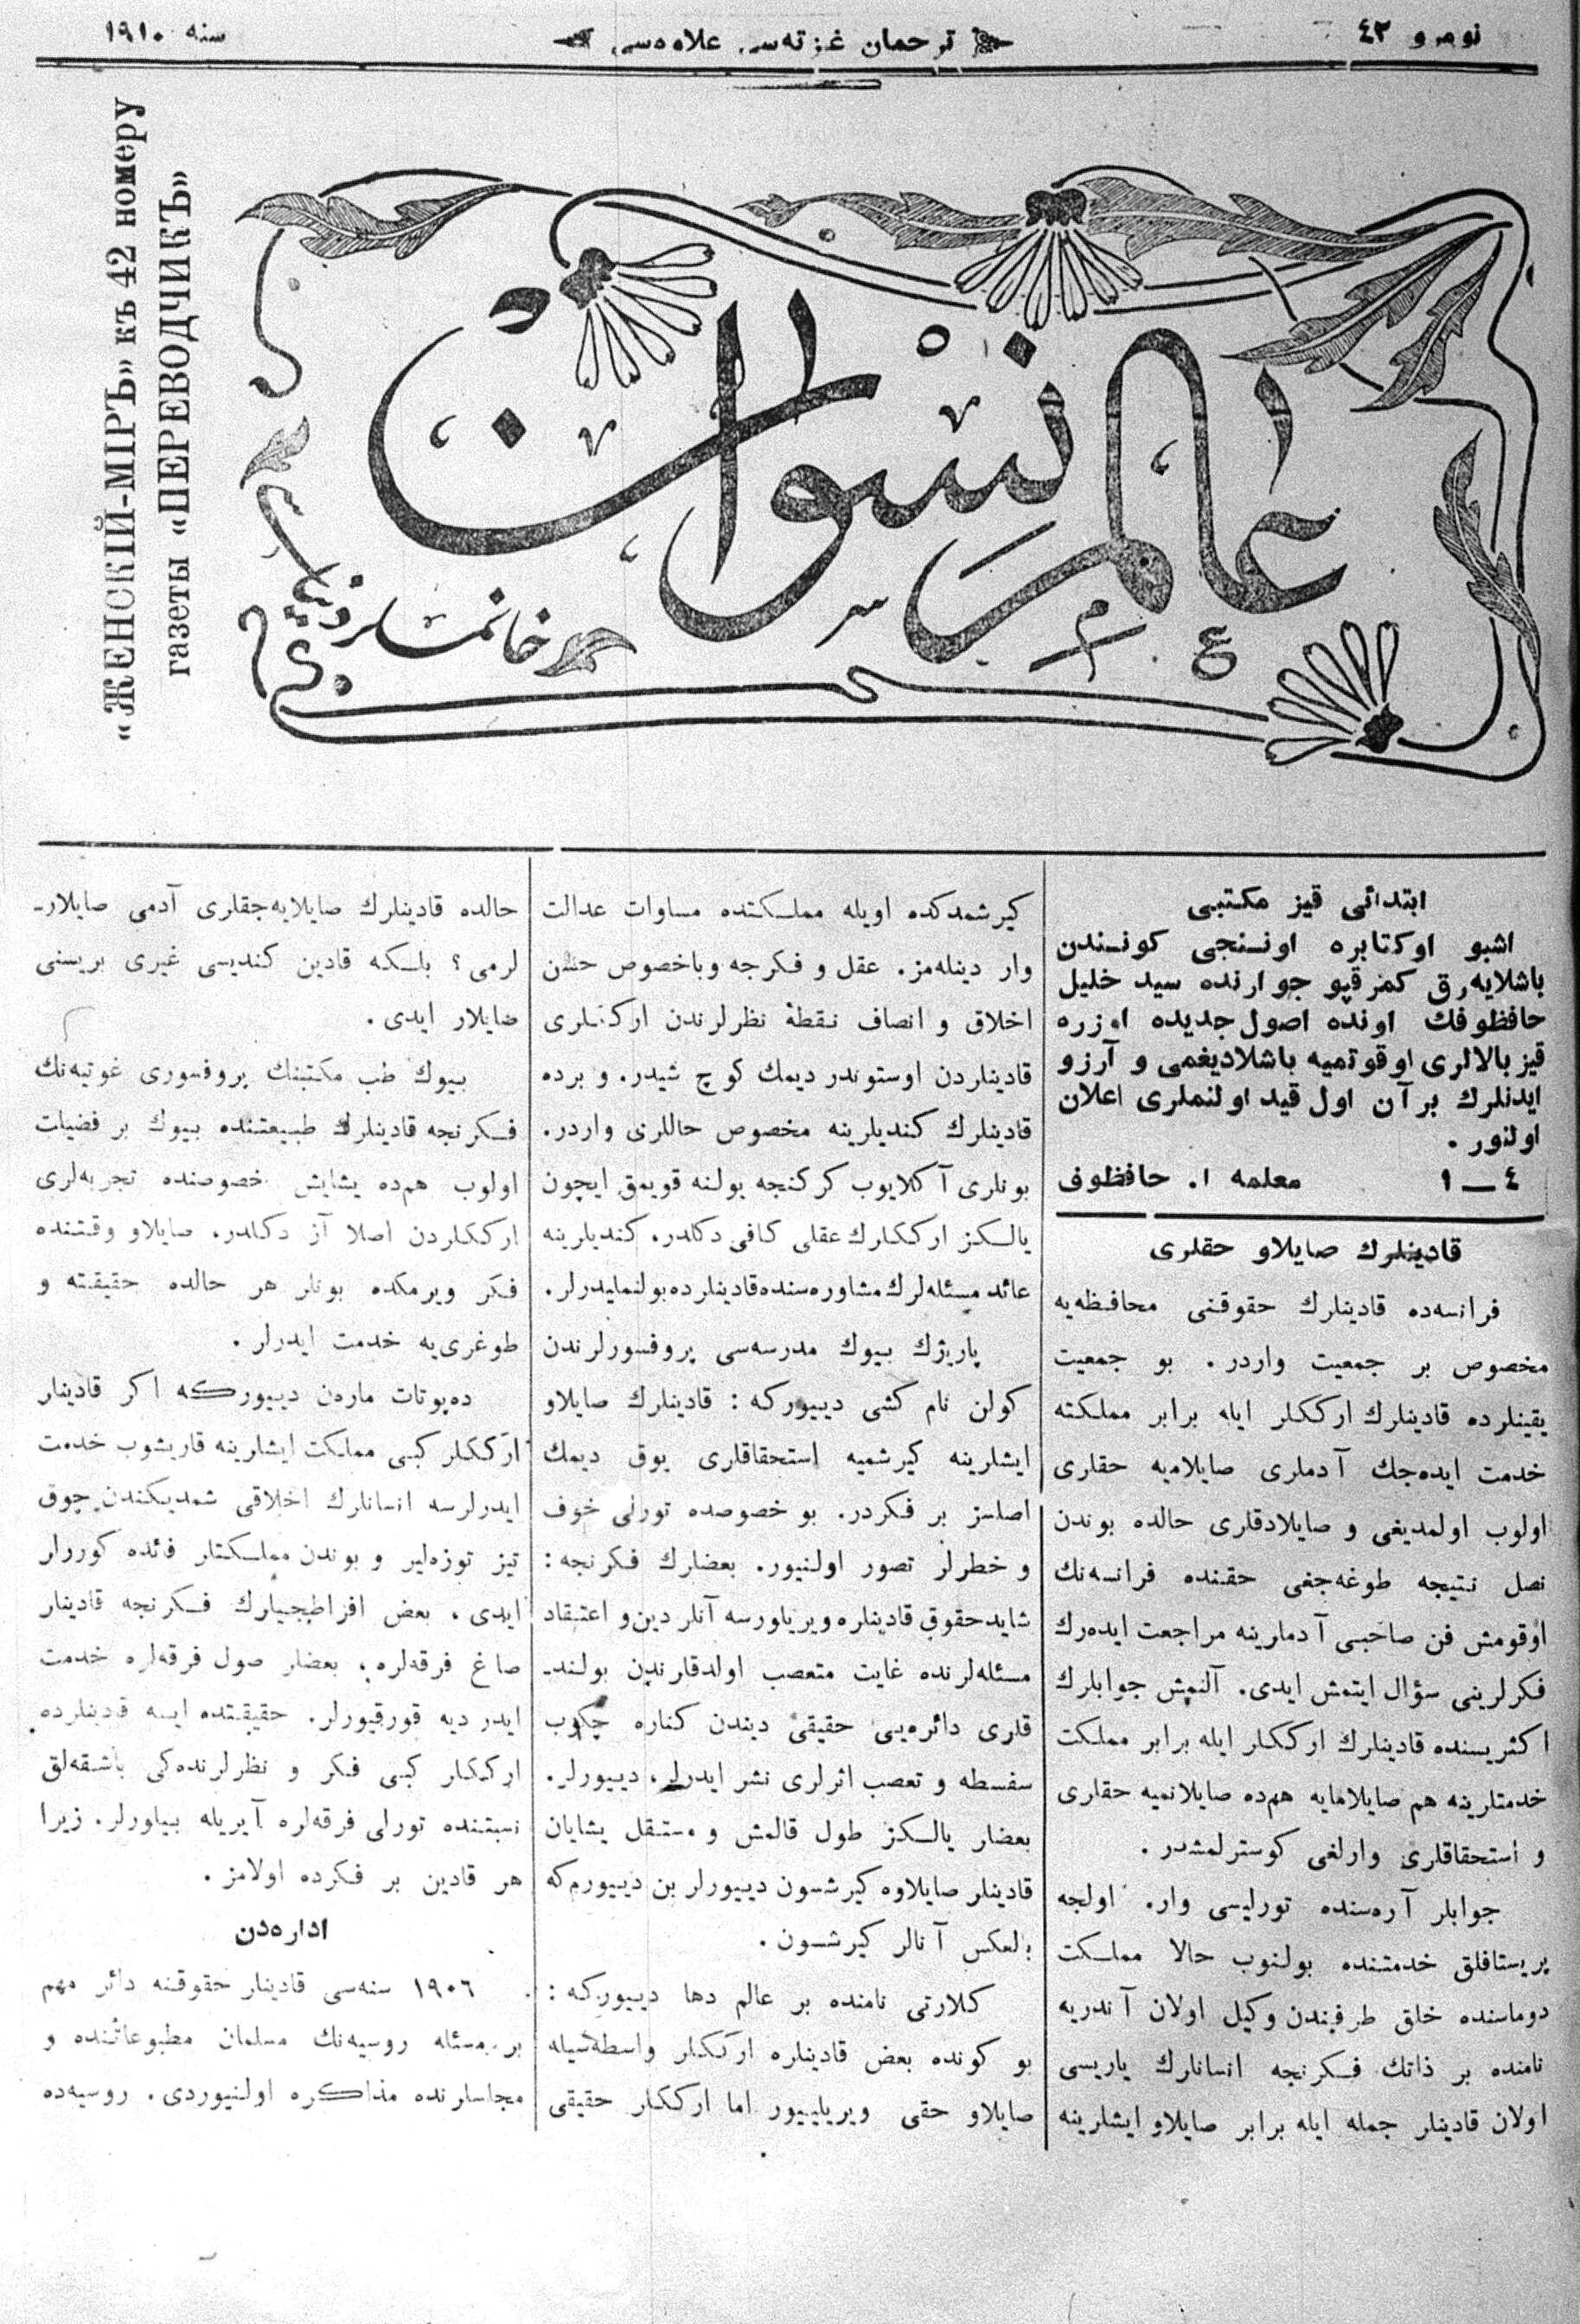 نومرو ٤٢
ترجمان غزته‌سى علاوه‌سى
سنه ١٩١٠
«ЖЕНСКІЙ-МІРЪ» къ 42 номеру
газеты «ПЕРЕВОДЧИКЪ»
عالم نسوان
خانملر دنياسى
ابتدائى قيز مكتبى
اشبو اوكتابره اوننجى كونندن
باشلايه‌رق كمرقپو جوارنده سيد خليل
حافظوفك اونده اصول جديده اوزره
قيز بالالرى اوقوتميه باشلاديغمى و آرزو
ايدنلرك بر آن اول قيد اولنملرى اعلان
اولنور .
٤ — ١ معلمه ا. حافظوف
قادينلرك صايلاو حقلرى
فرانسه‌ده قادينلرك حقوقنى محافظه‌يه
مخصوص بر جمعيت واردر . بو جمعيت
يقينلرده قادينلرك ارككلر ايله برابر مملكته
خدمت ايده‌جك آدملرى صايلاميه حقلرى
اولوب اولمديغى و صايلادقلرى حالده بوندن
نصل نتيجه طوغه‌جغى حقنده فرانسه‌نك
اوقومش فن صاحبى آدملرينه مراجعت ايده‌رك
فكرلرينى سؤال ايتمش ايدى. آلنمش جوابلرك
اكثريسنده قادينلرك ارككلر ايله برابر مملكت
خدمتلرينه هم صايلامايه هم‌ده صايلانميه حقلرى
و استحقاقلرى وارلغى كوسترلمشدر .
جوابلر آره‌سنده تورليسى وار. اولجه
پريستافلق خدمتنده بولنوب حالا مملكت
دوماسنده خلق طرفندن وكيل اولان آندريه
نامنده بر ذاتك فكرنجه انسانلرك ياريسى
اولان قادينلر جمله ايله برابر صايلاو ايشلرينه
كيرشمدكده اويله مملكتده مساوات عدالت
وار دينله‌مز. عقل و فكرجه وباخصوص حسن
اخلاق و انصاف نقطۀ نظرلرندن ارككلرى
قادينلردن اوستوندر ديمك كوچ شيدر. و برده
قادينلرك كنديلرينه مخصوص حاللرى واردر.
بونلرى آكلايوب كركنجه يولنه قويمق ايچون
يالكز ارككلرك عقلى كافى دكلدر. كنديلرينه
عائد مسئله‌لرك مشاوره‌سنده قادينلرده بولنمليدرلر.
پاريژك بيوك مدرسه‌سى پروفسورلرندن
كولن نام كشى دييوركه : قادينلرك صايلاو
ايشلرينه كيرشميه استحقاقلرى يوق ديمك
اصلسز بر فكردر. بو خصوصده تورلى خوف
و خطرلر تصور اولنيور. بعضلرك فكرنجه :
شايد حقوق قادينلره ويريلورسه آنلر دين و اعتقاد
مسئله‌لرنده غايت متعصب اولدقلرندن بولند-
قلرى دائره‌يى حقيقى ديندن كناره چكوب
سفسطه و تعصب اثرلرى نشر ايدرلر، دييورلر.
بعضلر يالكز طول قالمش و مستقل يشايان
قادينلر صايلاوه كيرشسون دييورلر بن دييورم‌كه
بالعكس آنالر كيرشسون .
كلارتى نامنده بر عالم دها دييوركه :
بو كونده بعض قادينلره ارككلر واسطه‌سيله
صايلاو حقى ويريلييور اما ارككلر حقيقى
حالده قادينلرك صايلايه‌جقلرى آدمى صايلار-
لرمى ؟ بلكه قادين كنديسى غيرى بريسنى
صايلار ايدى .
بيوك طب مكتبنك پروفسورى غوتيه‌نك
فكرنجه قادينلرك طبيعتنده بيوك بر فضيلت
اولوب هم‌ده يشايش خصوصنده تجربه‌لرى
ارككلردن اصلا آز دكلدر. صايلاو وقتنده
فكر ويرمكده بونلر هر حالده حقيقته و
طوغرى‌يه خدمت ايدرلر .
ده‌پوتات ماره‌ن دييوركه اكر قادينلر
ارككلر كبى مملكت ايشلرينه قاريشوب خدمت
ايدرلرسه انسانلرك اخلاقى شمديكندن چوق
تيز توزه‌لير و بوندن مملكتلر فائده كورورلر
ايدى. بعض افراطجيلرك فكرنجه قادينلر
صاغ فرقه‌لره، بعضلر صول فرقه‌لره خدمت
ايدر ديه قورقيورلر. حقيقتده ايسه قادينلرده
ارككلر كبى فكر و نظرلرنده‌كى باشقه‌لق
نسبتنده تورلى فرقه‌لره آيريله بيلورلر. زيرا
هر قادين بر فكرده اولامز .
اداره‌دن
١٩٠٦ سنه‌سى قادينلر حقوقنه دائر مهم
بر مسئله روسيه‌نك مسلمان مطبوعاتنده و
مجلسلرنده مذاكره اولنيوردى . روسيه‌ده